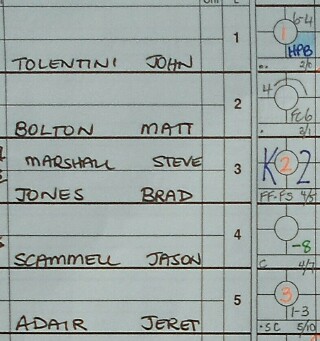 1 6-4
1
HPB
TOLENTINI JOHN 2/0
4
2
FC6
BOLTON MATT 3/1
MARSHALL STEVE 3 K 2 2
JONES BRAD FF-FS 4/5
4 -8
SCAMMELL JASON C 4/7
5 3
1-3
ADAIR JERET SC 5/10